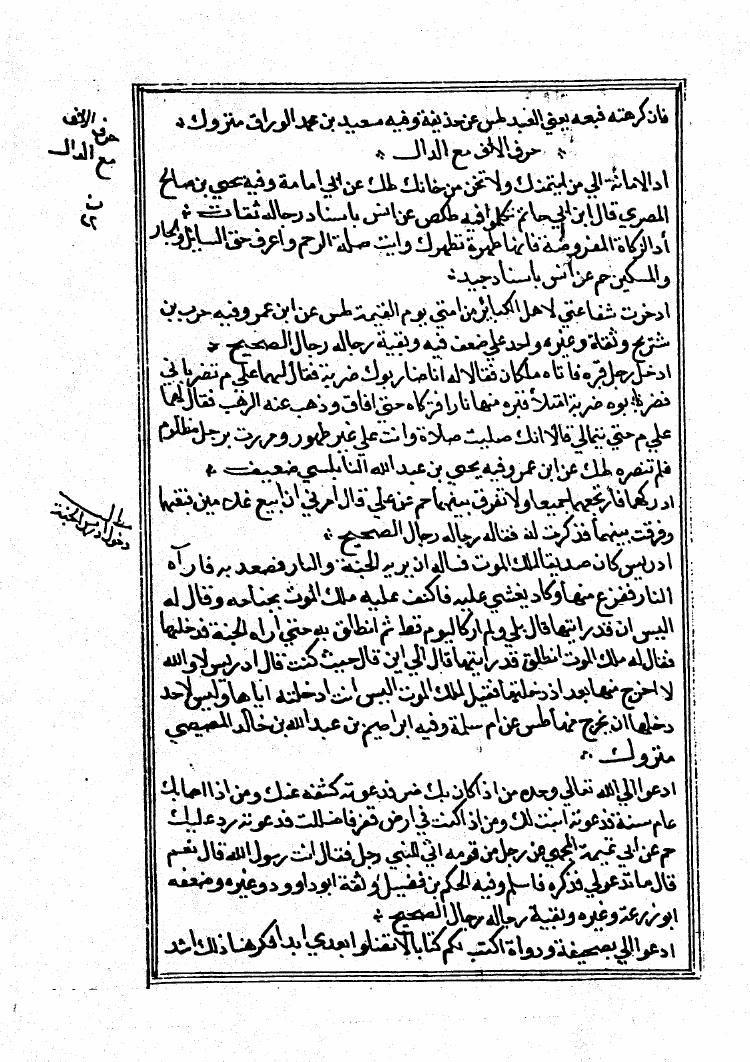 فان كرهته فبعه يعني العبد لطس عن حذيفة وفيه سعيد بن محمد الوراق متروك
حرف الالف مع الدال
اد الامانة الي من ايتمنك ولا تخن من خانك طك عن ابي امامة وفيه يحيي بن صالح
المصري قال ابن ابي حاتم تكلموا فيه طكص عن انس باسناد رجاله ثقات
أد الزكاة المفروضة فانها طهرة تطهرك وايت صلة الرحم واعرف حق السايل والجار
والمسكين حم عن انس باسناد جيد
ادخرت شفاعتي لاهل الكباير من امتي يوم القيمة طس عن ابن عمر وفيه حرب بن
شريح وثقة وغيره واحد علي ضعف فيه وبقية رجاله رجال الصحيح
ادخل رجل قبره فاتاه ملكان فقالا له انا ضاربوك ضربة فقال لهما علي م تضرباني
فضربوه ضربة امتلأ قبره منها نارا فتركاه حتي افاق وذهب عنه الرعب فقال لهما
علي م ضربتماني فقالا انك صليت صلاة وانت علي غير طهور ومررت برجل مظلوم
فلم تنصره طك عن ابن عمر وفيه يحيي بن عبد الله البابلتي ضعيف
ادركهما فارتجعهما جميعا ولا تفرق بينهما حم عن علي قال امرني ان ابيع غلامين فبعتهما
وفرقت بينهما فذكرت له فقاله رجاله رجال الصحيح
ادريس كان صديقا لملك الموت فساله ان يريه الجنة والنار فصعد به فاراه
النار ففزع منها وكاد يغشي عليه فاكتف عليه ملك الموت بجناحه وقال له
اليس ان قد رايتها قال بلي ولم ار كاليوم قط ثم انطلق به حتي اراه الجنة فدخلها
فقال له ملك الموت انطلق قد رايتها قال الي اين قال حيث كنت قال ادريس لا والله
لا اخرج منها بعد اذ دخلتها فقيل لملك الموت اليس انت ادخلته اياها وليس لاحد
دخلها ان يخرج منها طس عن ام سلمة وفيه ابراهيم بن عبد الله بن خالد المصيصي
متروك
ادعوا الي الله تعالي وحده من اذ اكان بك ضر فدعوته كشفه عنك ومن اذا اصابك
عام سنة فدعوته انبت لك ومن اذ اكنت في ارض قفر فاضللت فدعوته رد عليك
حم عن ابي تميمة الهجيمي عن رجل من قومه اتي للنبي رجل فقال انت رسول الله قال نعم
قال ما تدعوا لي فذكره فاسلم وفيه الحكم بن فضيل وثقة ابو داوود وغيره وضعفه
ابو زرعة وغيره وبقية رجاله رجال الصحيح
ادعوا الي بصحيفة ودواة اكتب لكم كتابا لا تضلوا بعدي ابدا فكرهنا ذلك اشد
حرف الالف
مع الدال
ن
٢٢
دخول ادريس الجنة